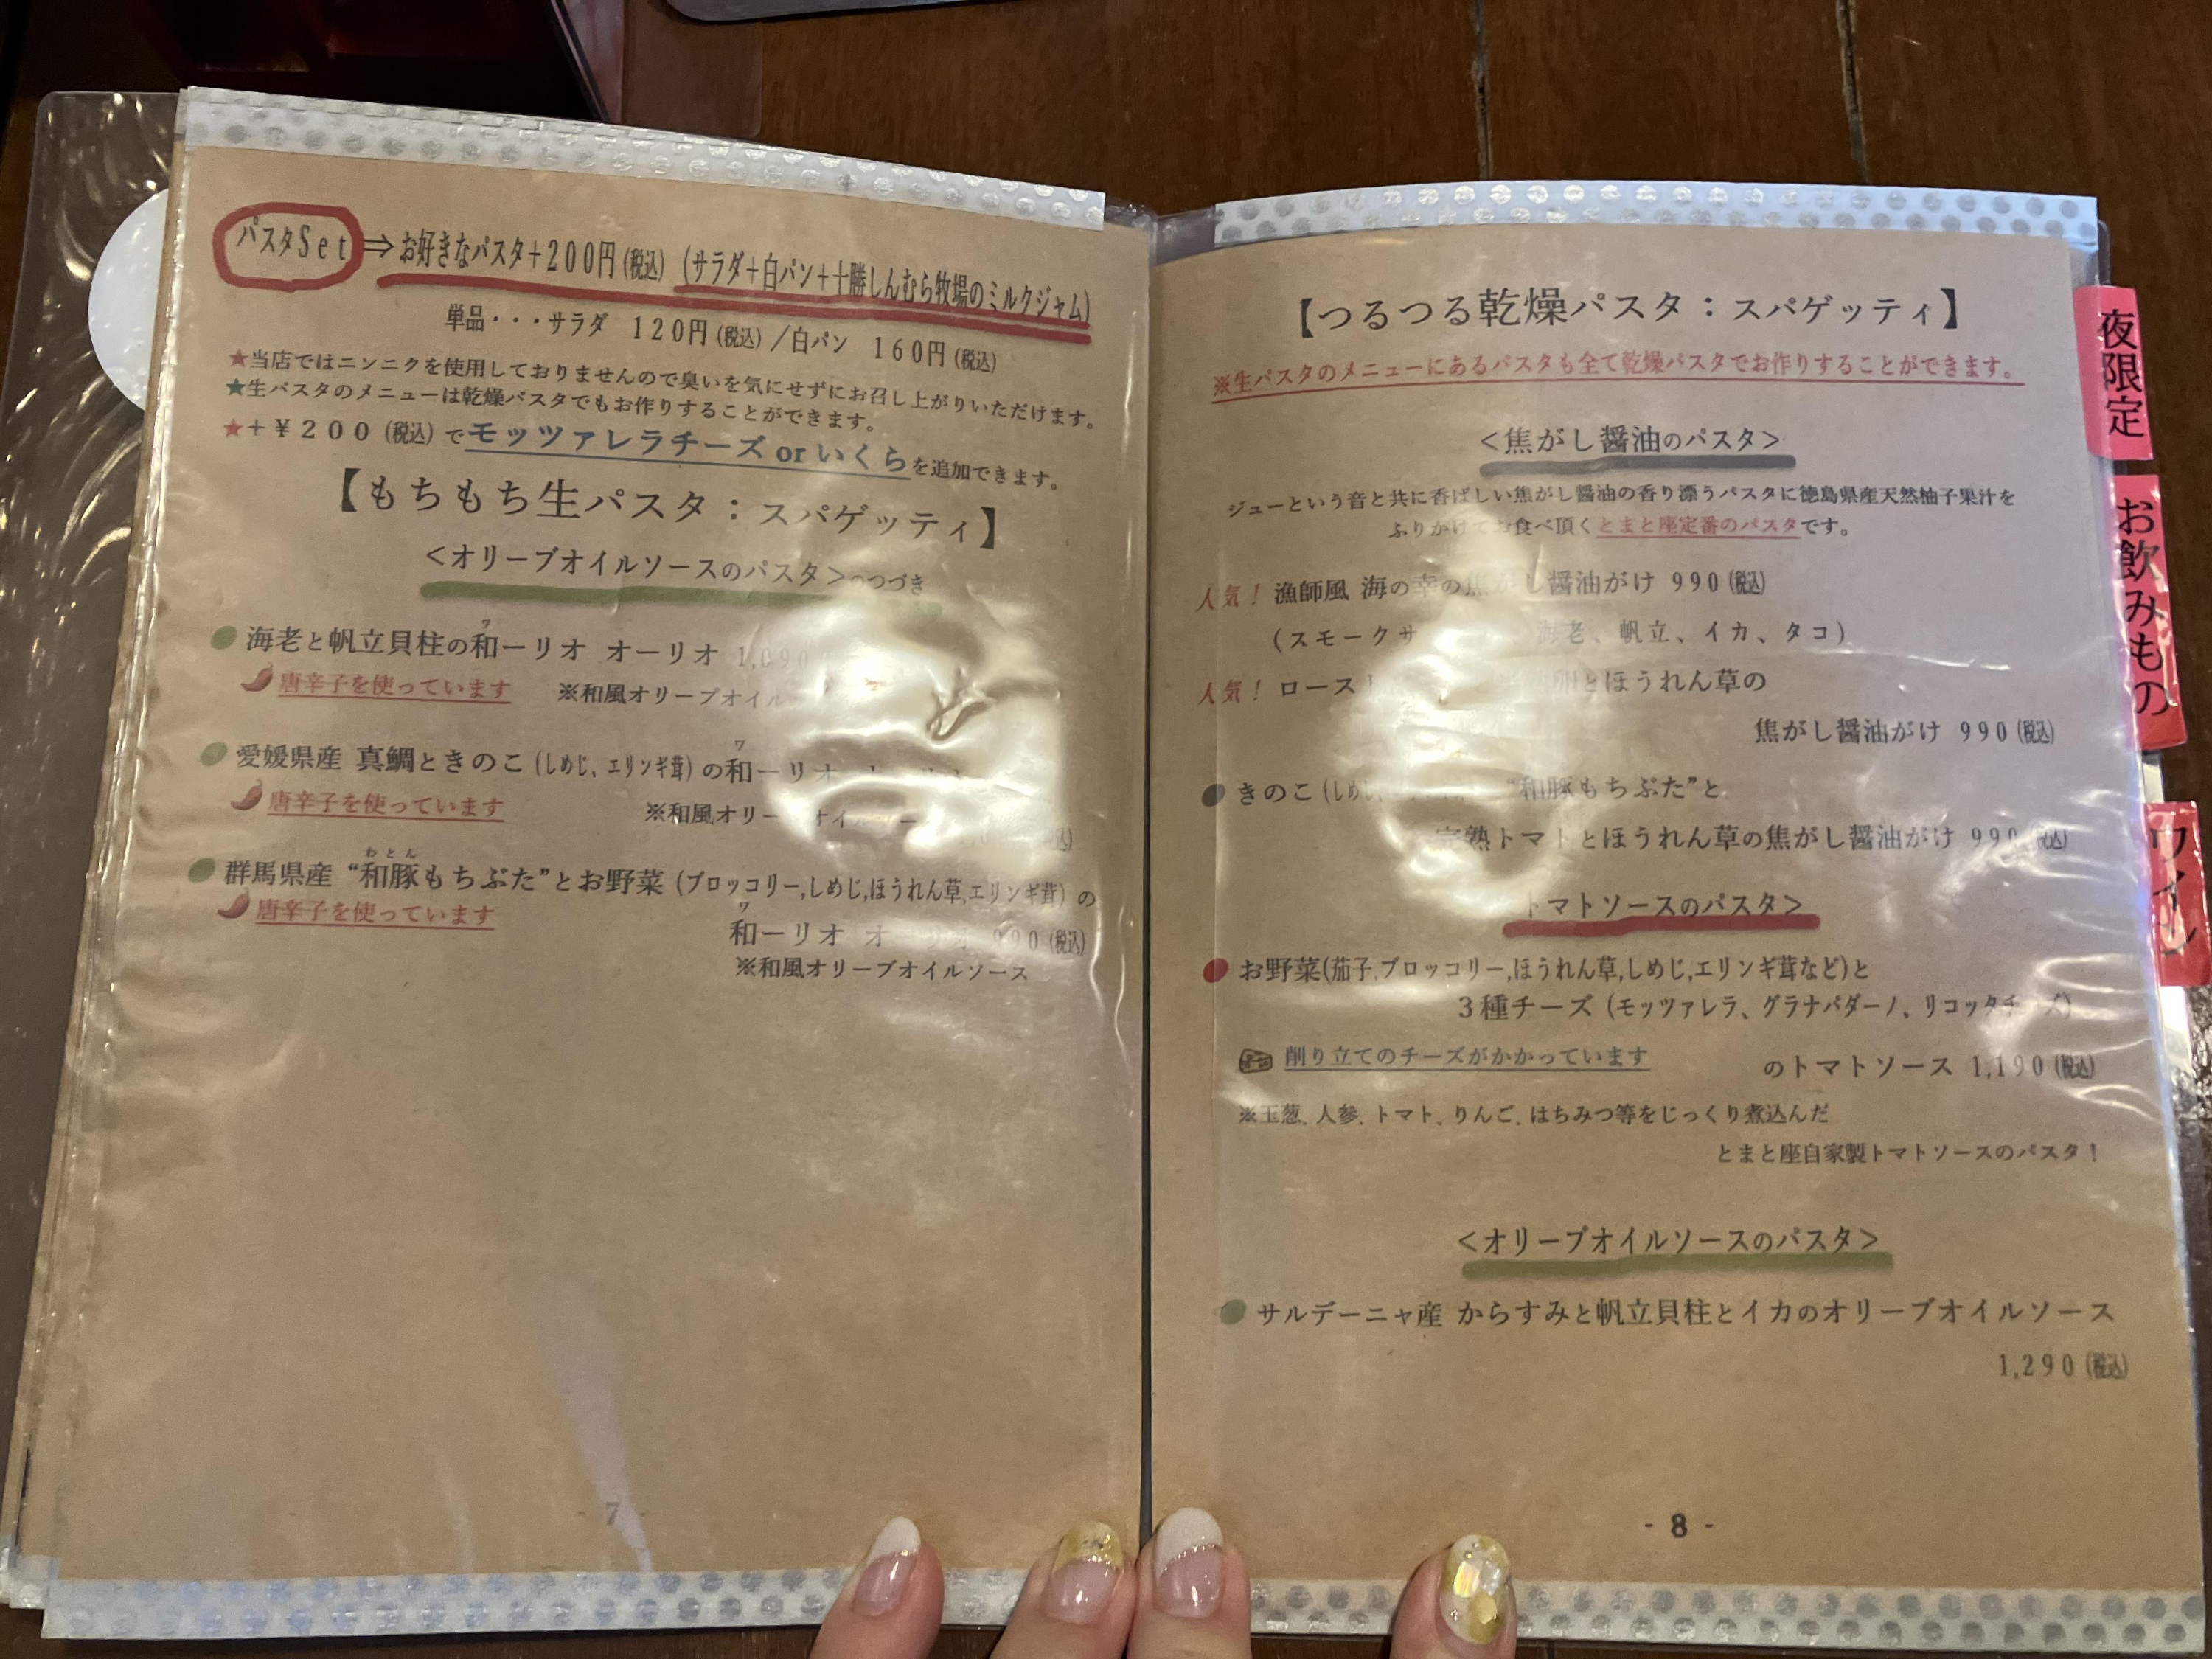 パスタSet⇒お好きなパスタ+200円(税込) (サラダ+白パン+十勝しんむら牧場のミルクジャム)
単品・・・サラダ 120円(税込)/白パン 160円(税込)
★当店ではニンニクを使用しておりませんので臭いを気にせずにお召し上がりいただけます。
★生パスタのメニューは乾燥パスタでもお作りすることができます。
★+¥200(税込)でモッツァレラチーズ or いくらを追加できます。
【もちもち生パスタ：スパゲッティ】
<オリーブオイルソースのパスタ>のつづき
ワ
海老と帆立貝柱の和ーリオ オーリオ 1,090
唐辛子を使っています ※和風オリーブオイル
ワ
愛媛県産 真鯛ときのこ(しめじ、エリンギ茸)の和ーリオ
唐辛子を使っています ※和風オリーブオイル
わとん
群馬県産 “和豚もちぶた”とお野菜(ブロッコリー,しめじ,ほうれん草,エリンギ茸)の
唐辛子を使っています
ワ
和ーリオ オーリオ 990(税込)
※和風オリーブオイルソース
- 7 -
【つるつる乾燥パスタ：スパゲッティ】
※生パスタのメニューにあるパスタも全て乾燥パスタでお作りすることができます。
<焦がし醤油のパスタ>
ジューという音と共に香ばしい焦がし醤油の香り漂うパスタに徳島県産天然柚子果汁を
ふりかけてお食べ頂くとまと座定番のパスタです。
人気！漁師風 海の幸の焦がし醤油がけ 990(税込)
(スモークサ 海老、帆立、イカ、タコ)
人気！ロースト とほうれん草の
焦がし醤油がけ 990(税込)
きのこ(しめじ、 “和豚もちぶた”と
完熟トマトとほうれん草の焦がし醤油がけ 990(税込)
トマトソースのパスタ>
お野菜(茄子,ブロッコリー,ほうれん草,しめじ,エリンギ茸など)と
3種チーズ(モッツァレラ、グラナパダーノ、リコッタチーズ)
削り立てのチーズがかかっています のトマトソース 1,190(税込)
※玉葱、人参、トマト、りんご、はちみつ等をじっくり煮込んだ
とまと座自家製トマトソースのパスタ！
<オリーブオイルソースのパスタ>
サルデーニャ産 からすみと帆立貝柱とイカのオリーブオイルソース
1,290(税込)
- 8 -
夜限定
お飲みもの
ワイン